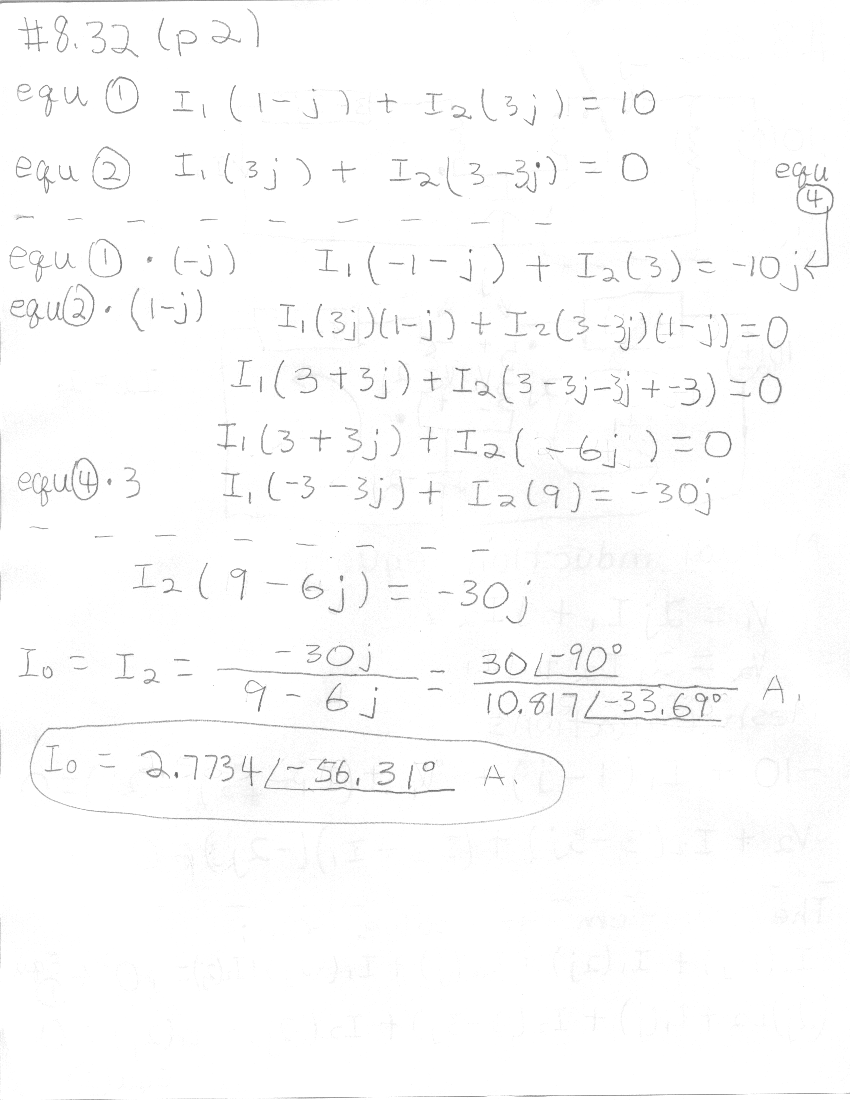 #8.32 (p2)
equ ① I₁(1-j) + I₂(3j) = 10
equ ② I₁(3j) + I₂(3-3j) = 0 equ ④
equ ① · (-j) I₁(-1-j) + I₂(3) = -10j
equ ② · (1-j) I₁(3j)(1-j) + I₂(3-3j)(1-j) = 0
I₁(3+3j) + I₂(3-3j-3j+-3) = 0
I₁(3+3j) + I₂(-6j) = 0
equ ④ · 3 I₁(-3-3j) + I₂(9) = -30j
I₂(9-6j) = -30j
I₀ = I₂ = -30j / 9-6j = 30∠-90° / 10.817∠-33.69° A.
I₀ = 2.7734∠-56.31° A.